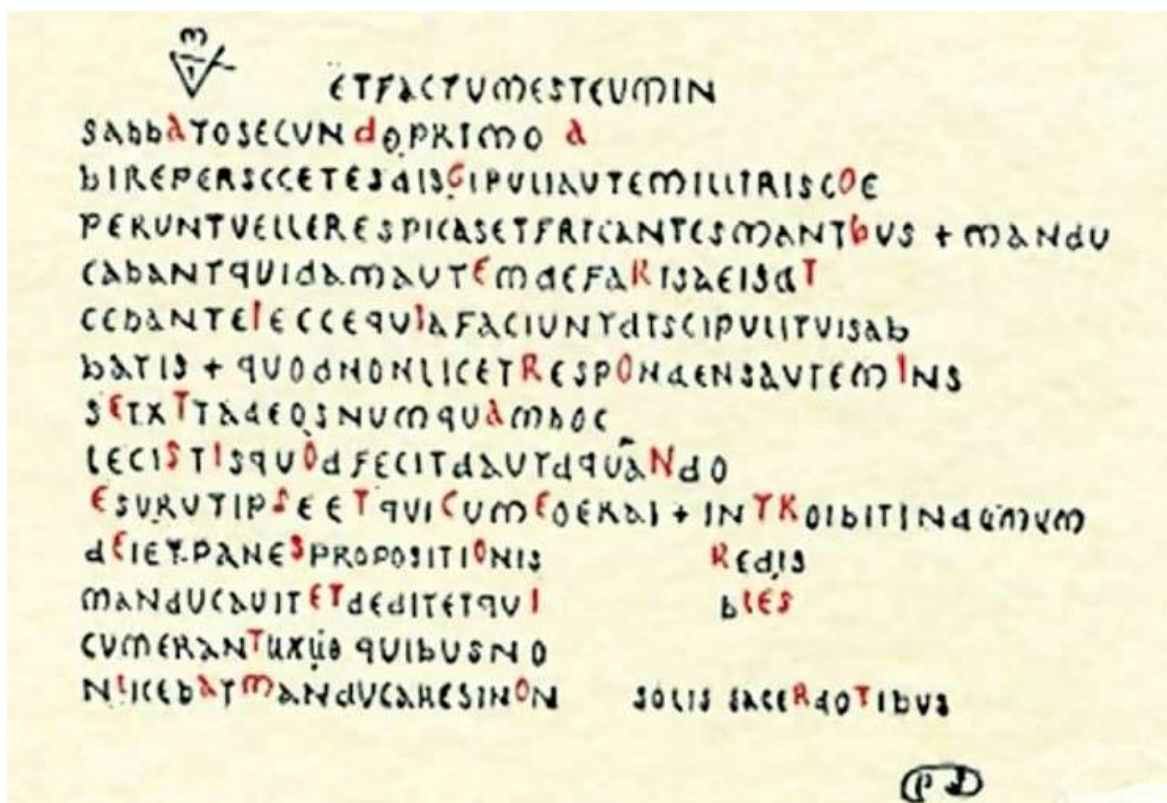 ETFACTUMESTEUMIN
SABBATOSECUNDOPRIMO A
BIREPERSCCETESDISGIPULIAUTEMILLITRISCOE
PERUNTVELLERESPICASETFRICANTESMANTBUS + MANDU
CABANTQUIDAMAUTEMDEFARISAEISAT
CEBANTEIECCEQUIAFACIUNTDISCIPULITUISAB
BATIS + QUODNONLICETRESPONDENSAUTEMINS
SETXTTADEOSNUMQUAMHOC
LECISTISQUODFECITDAUTDQUANDO
ESURUTIPSEETQUICUMEOERAI + INTROIBITINDUMUM
DEIETPANESPROPOSITIONIS REDIS
MANDUCAUITETDEDITETQUI BLES
CUMERANTUXUO QUIBUSNO
NLICEBATMANDUCARESINON SOLIS SACERDOTIBUS
PD